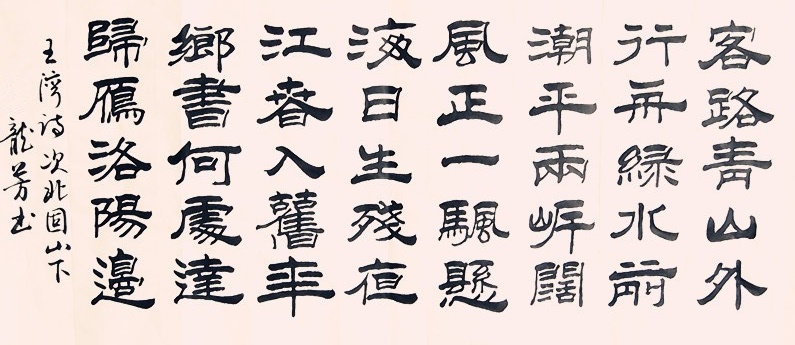 客路青山外
行舟綠水前
潮平兩岸闊
風正一颿懸
海日生殘夜
江春入舊年
鄉書何處達
歸鴈洛陽邊
王灣詩次北固山下
龍芳书